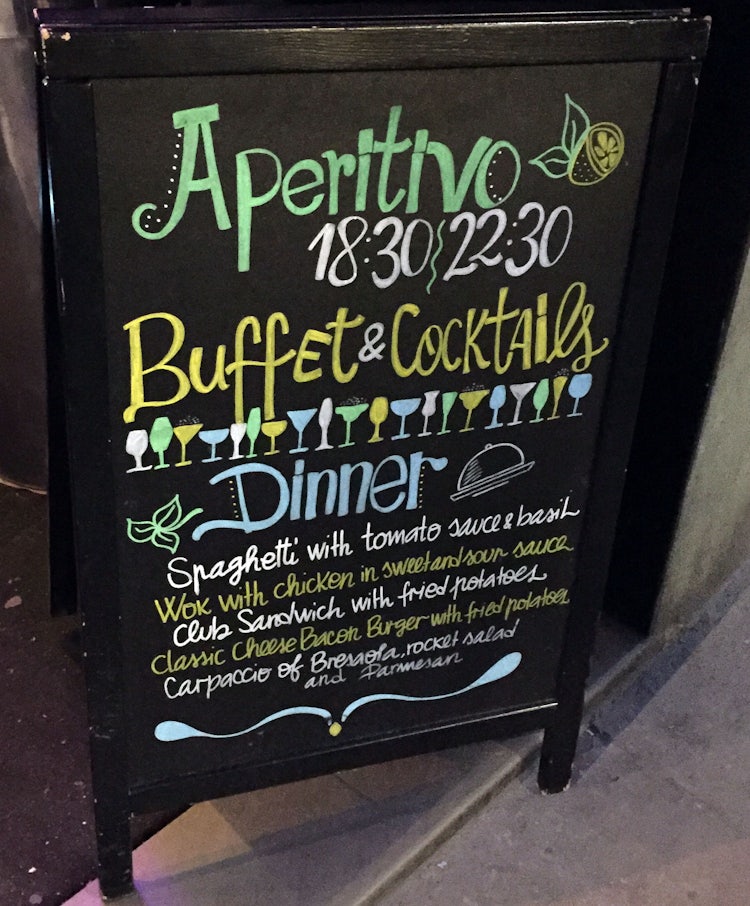 Aperitivo
18:30 22:30
Buffet & Cocktails
Dinner
Spaghetti with tomato sauce & basil
Wok with chicken in sweet and sour sauce
Club Sandwich with fried potatoes
Classic Cheese Bacon Burger with fried potatoes
Carpaccio of Bresaola, rocket salad
and Parmesan